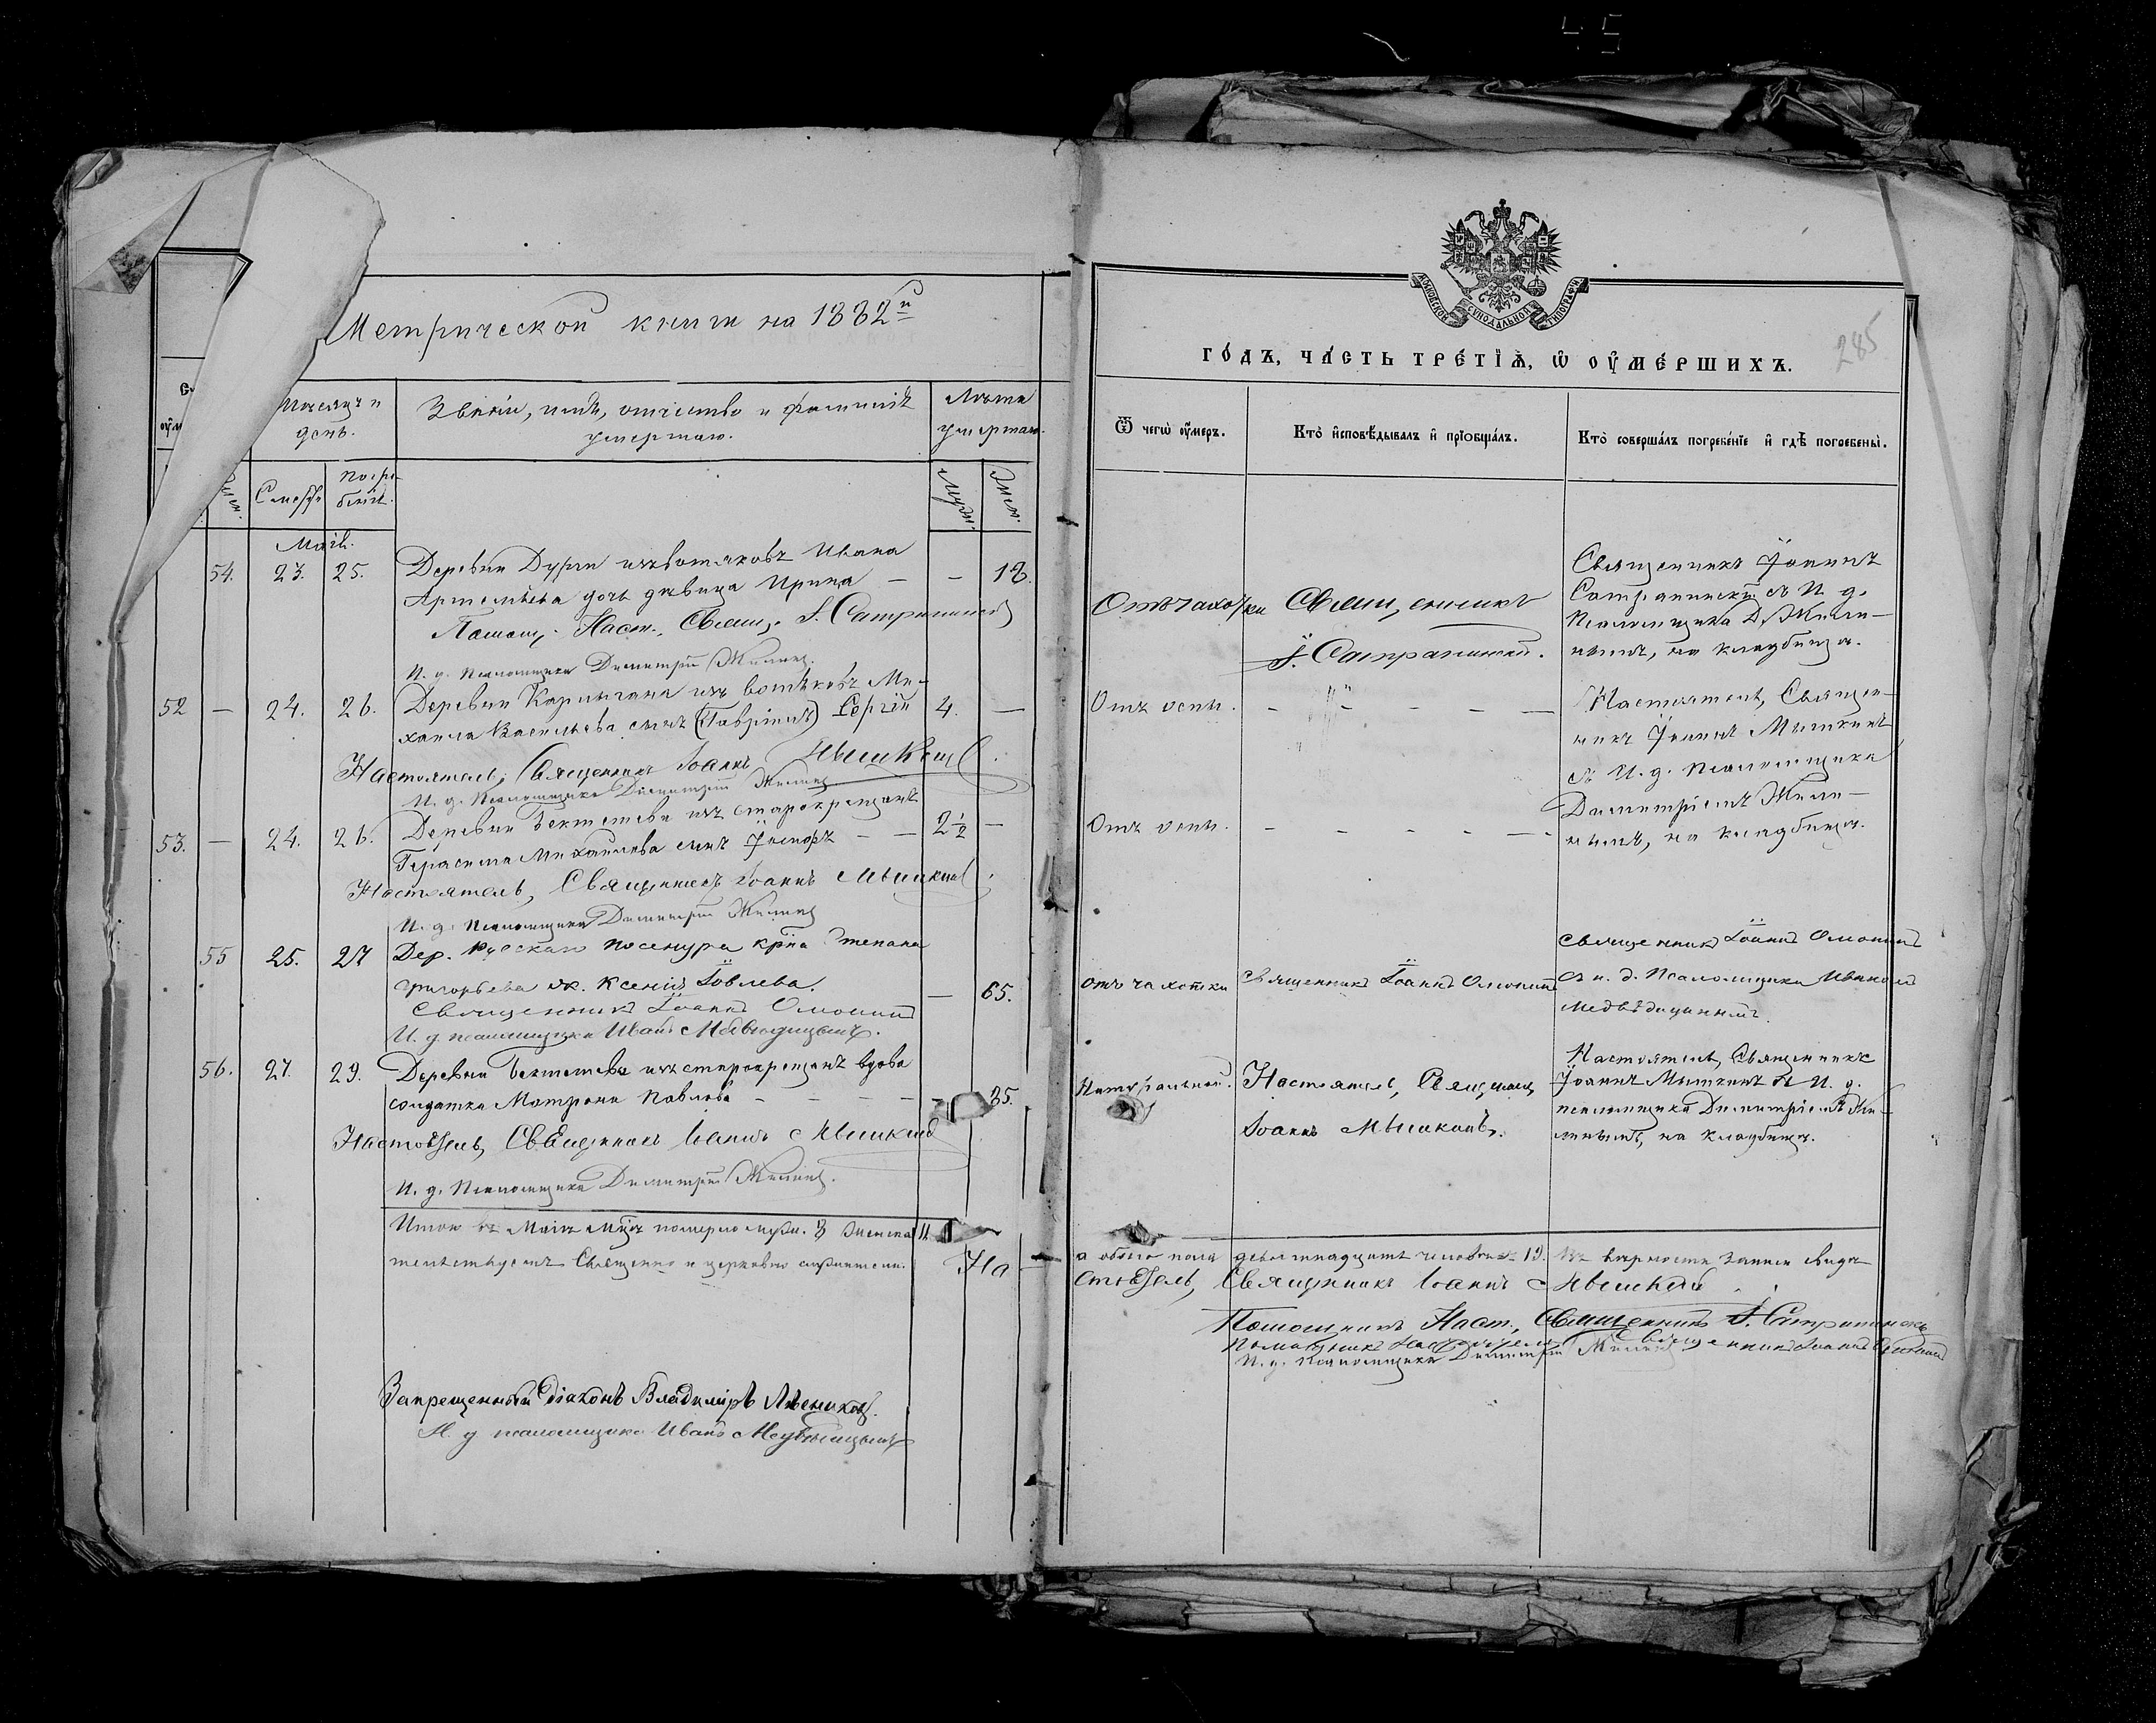 45
Метрической книги на 1882й
годъ, часть третїѧ, ѡ оумершихъ.
285
Мѣсяцъ и
день.
Званіе, имя, отчество и фамилія
умершаго.
Лѣта
умершаго.
Смерти
Погре-
бенія.
Мужс.
Женс.
Ѿ чегѡ оумеръ.
Кто исповѣдывалъ и прїобщалъ.
Кто совершалъ погребенїе и гдѣ погребены.
МОСКОВСКОЙ СѴНОДАЛЬНОЙ ТИПОГРАФІИ
Маій.
54. 23. 25. Деревни Дурги изъ вотяковъ Ивана
Артемьева дочь дѣвица Ирина — — 12.
Помощ. Наст., Свящ. І. Сатрапинскій
И. д. Псаломщика Димитрій Жилинъ.
Отъ чахотки
Священникъ
І. Сатрапинскій.
Священникъ Іоаннъ
Сатрапинскій съ И. д.
Псаломщика Д. Жили-
нымъ, на кладбищѣ.
52 — 24. 26. Деревни Карлыгана изъ вотяковъ Ми-
хаила Васильева сынъ (Гавріилъ) Сергій 4. —
Настоятель, Священникъ Іоаннъ Мышкинъ
И. д. Псаломщика Димитрій Жилинъ
Отъ оспы. — — — —
Настоятель, Священ-
никъ Іоаннъ Мышкинъ
съ И. д. псаломщика
Димитріемъ Жили-
нымъ, на кладбищѣ.
53. — 24. 26. Деревни изъ старокрещенъ
Герасима Михайлова сынъ — — 2½ —
Настоятель, Священникъ Іоаннъ Мышкинъ
И. д. Псаломщика Димитрій Жилинъ
Отъ оспы. — — — — —
55 25. 27 Дер. Русскаго крна Степана
Григорьева ж. Ксенія Іовлева. — 65.
Священникъ Іоаннъ
И. д. псаломщика Иванъ Медвѣдицынъ.
отъ чахотки
Священникъ Іоаннъ
Священникъ Іоаннъ
съ и. д. Псаломщика Иваномъ
Медвѣдицынымъ.
56. 27. 29. Деревни изъ старокрещенъ вдова
солдатка Матрона Павлова — — — — 85.
Настоятель, Священникъ Іоаннъ Мышкинъ
И. д. Псаломщика Димитрій Жилинъ.
Натуральной.
Настоятель, Священ.
Іоаннъ Мышкинъ.
Настоятель, Священникъ
Іоаннъ Мышкинъ съ И. д.
псаломщика Димитріемъ Жи-
линымъ, на кладбищѣ.
Итого въ Маіѣ Мцѣ померло муж. 8 женска 11.
а обоего пола девятнадцать человѣкъ 19. Въ вѣрности записи свидѣ-
тельствуемъ Священно и церковно служители.
Настоятель, Священникъ Іоаннъ Мышкинъ
Помощникъ Наст., Священникъ І. Сатрапинскій
Помощникъ Настоятеля Священникъ Іоаннъ
И. д. Псаломщика Димитрій Жилинъ
Запрещенный діаконъ Владиміръ
И. д. псаломщика Иванъ Медвѣдицынъ